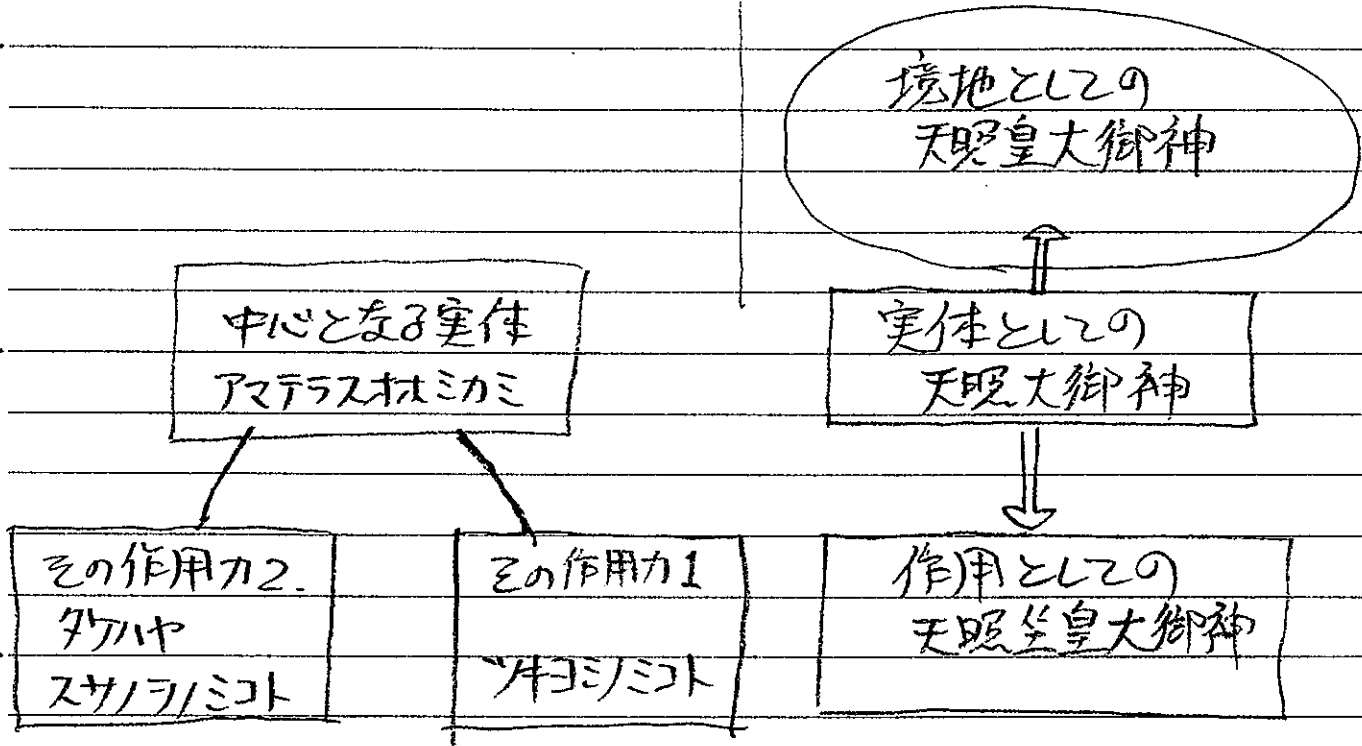 境地としての
天照皇大御神
中心となる実体
アマテラスオオミカミ
実体としての
天照大御神
その作用力2.
タケハヤ
スサノヲノミコト
その作用力1
ツキヨミノミコト
作用としての
天照坐皇大御神